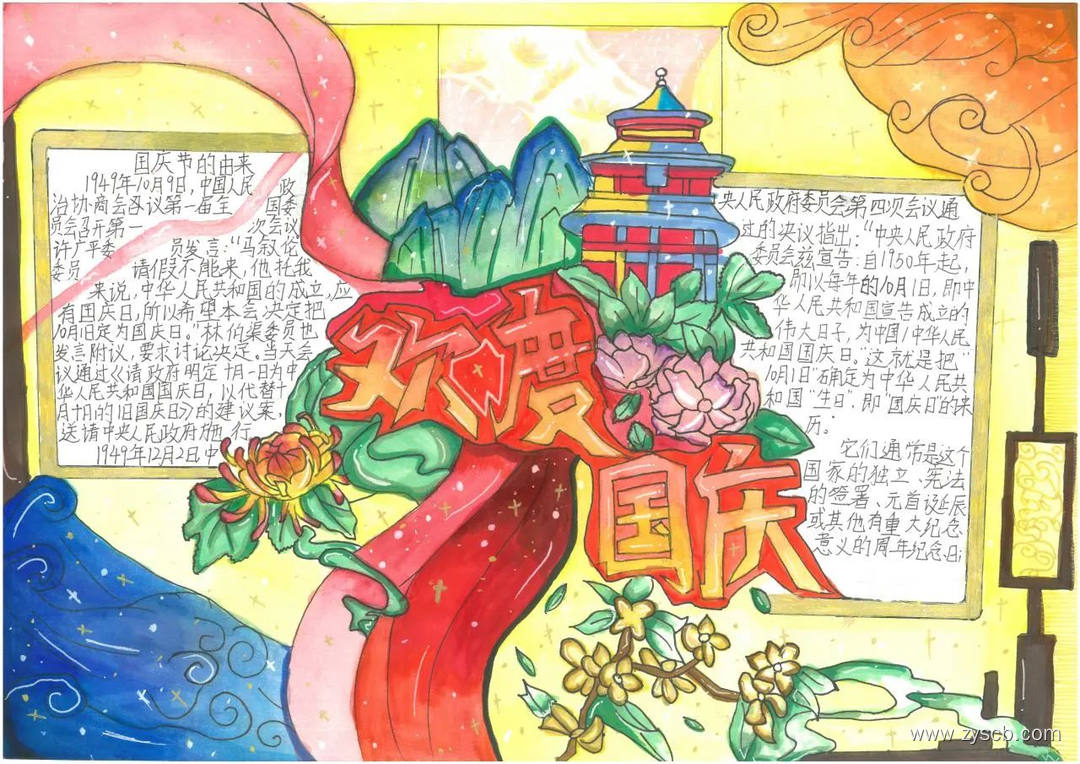 国庆节的由来
1949年10月9日,中国人民 政
治协商会各议第一届全 国委
员会召开第一 次会议
许广平委 员发言:“马叙伦
委员 请假不能来,他托我
来说,中华人民共和国的成立,应
有国庆日,所以希望本会决定把
10月1日定为国庆日。”林伯渠委员也
发言附议,要求讨论决定。当天会
议通过《请政府明定十月一日为中
华人民共和国国庆日,以代替十
月十日的旧国庆日》的建议案,
送请中央人民政府施行
1949年12月2日中
欢度
国庆
央人民政府委员会第四次会议通
过的决议指出:“中央人民政府
委员会兹宣告:自1950年起,
即以每年的10月1日,即中
华人民共和国宣告成立的
伟大日子,为中国(中华人民
共和国国庆日。这就是把“
10月1日”确定为中华人民共
和国“生日”,即“国庆日”的来
历。
它们通常是这个
国家的独立、宪法
的签署、元首诞辰
或其他有重大纪念
意义的周年纪念日;
www.zyscb.com